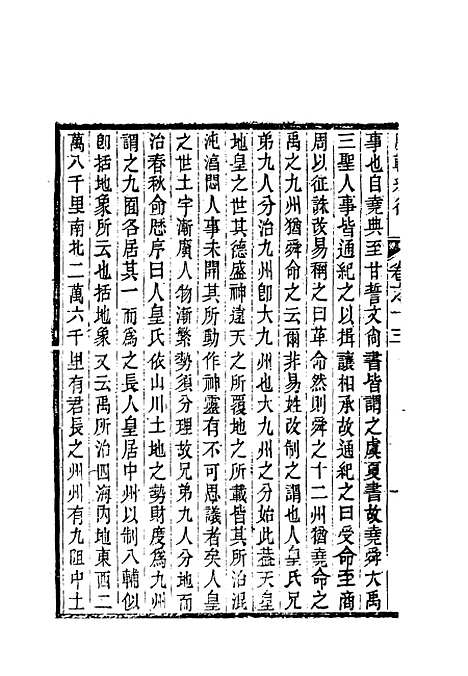 卷之十三
事也自堯典至甘誓文尙書皆謂之虞夏書故堯舜大禹
三聖人事皆通紀之以揖讓相承故通紀之曰受命至商
周以征誅改易稱之曰革命然則舜之十二州猶堯命之
禹之九州猶舜命之云爾非易姓改制之謂也人皇氏兄
弟九人分治九州卽大九州也大九州之分始此葢天皇
地皇之世其德盛神遠天之所覆地之所載皆其所治混
沌湻悶人事未開其所動作神靈有不可思議者矣人皇
之世土宇漸廣人物漸繁勢須分理故兄弟九人分地而
治春秋命厯序曰人皇氏依山川土地之勢財度爲九州
謂之九囿各居其一而爲之長人皇居中州以制八輔似
卽括地象所云也括地象又云禹所治四海內地東西二
萬八千里南北二萬六千里有君長之州州有九阻中土